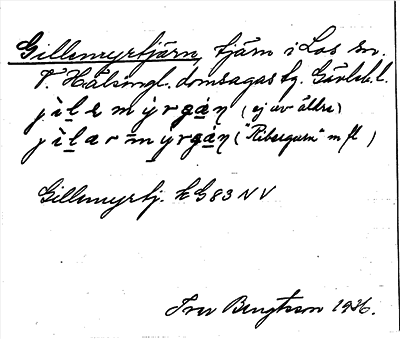 Gillemyrtjärn, tjärn i Los sn.
V. Hälsingl. domsagas tg. Gävleb. l.
jìlemýrgàn̥ (ej av äldre)
jìlarmýrgàn̥ ("Ribergarn" m fl)
Gillemyrtj. k G83 NV
Ivar Bengtsson 1936.